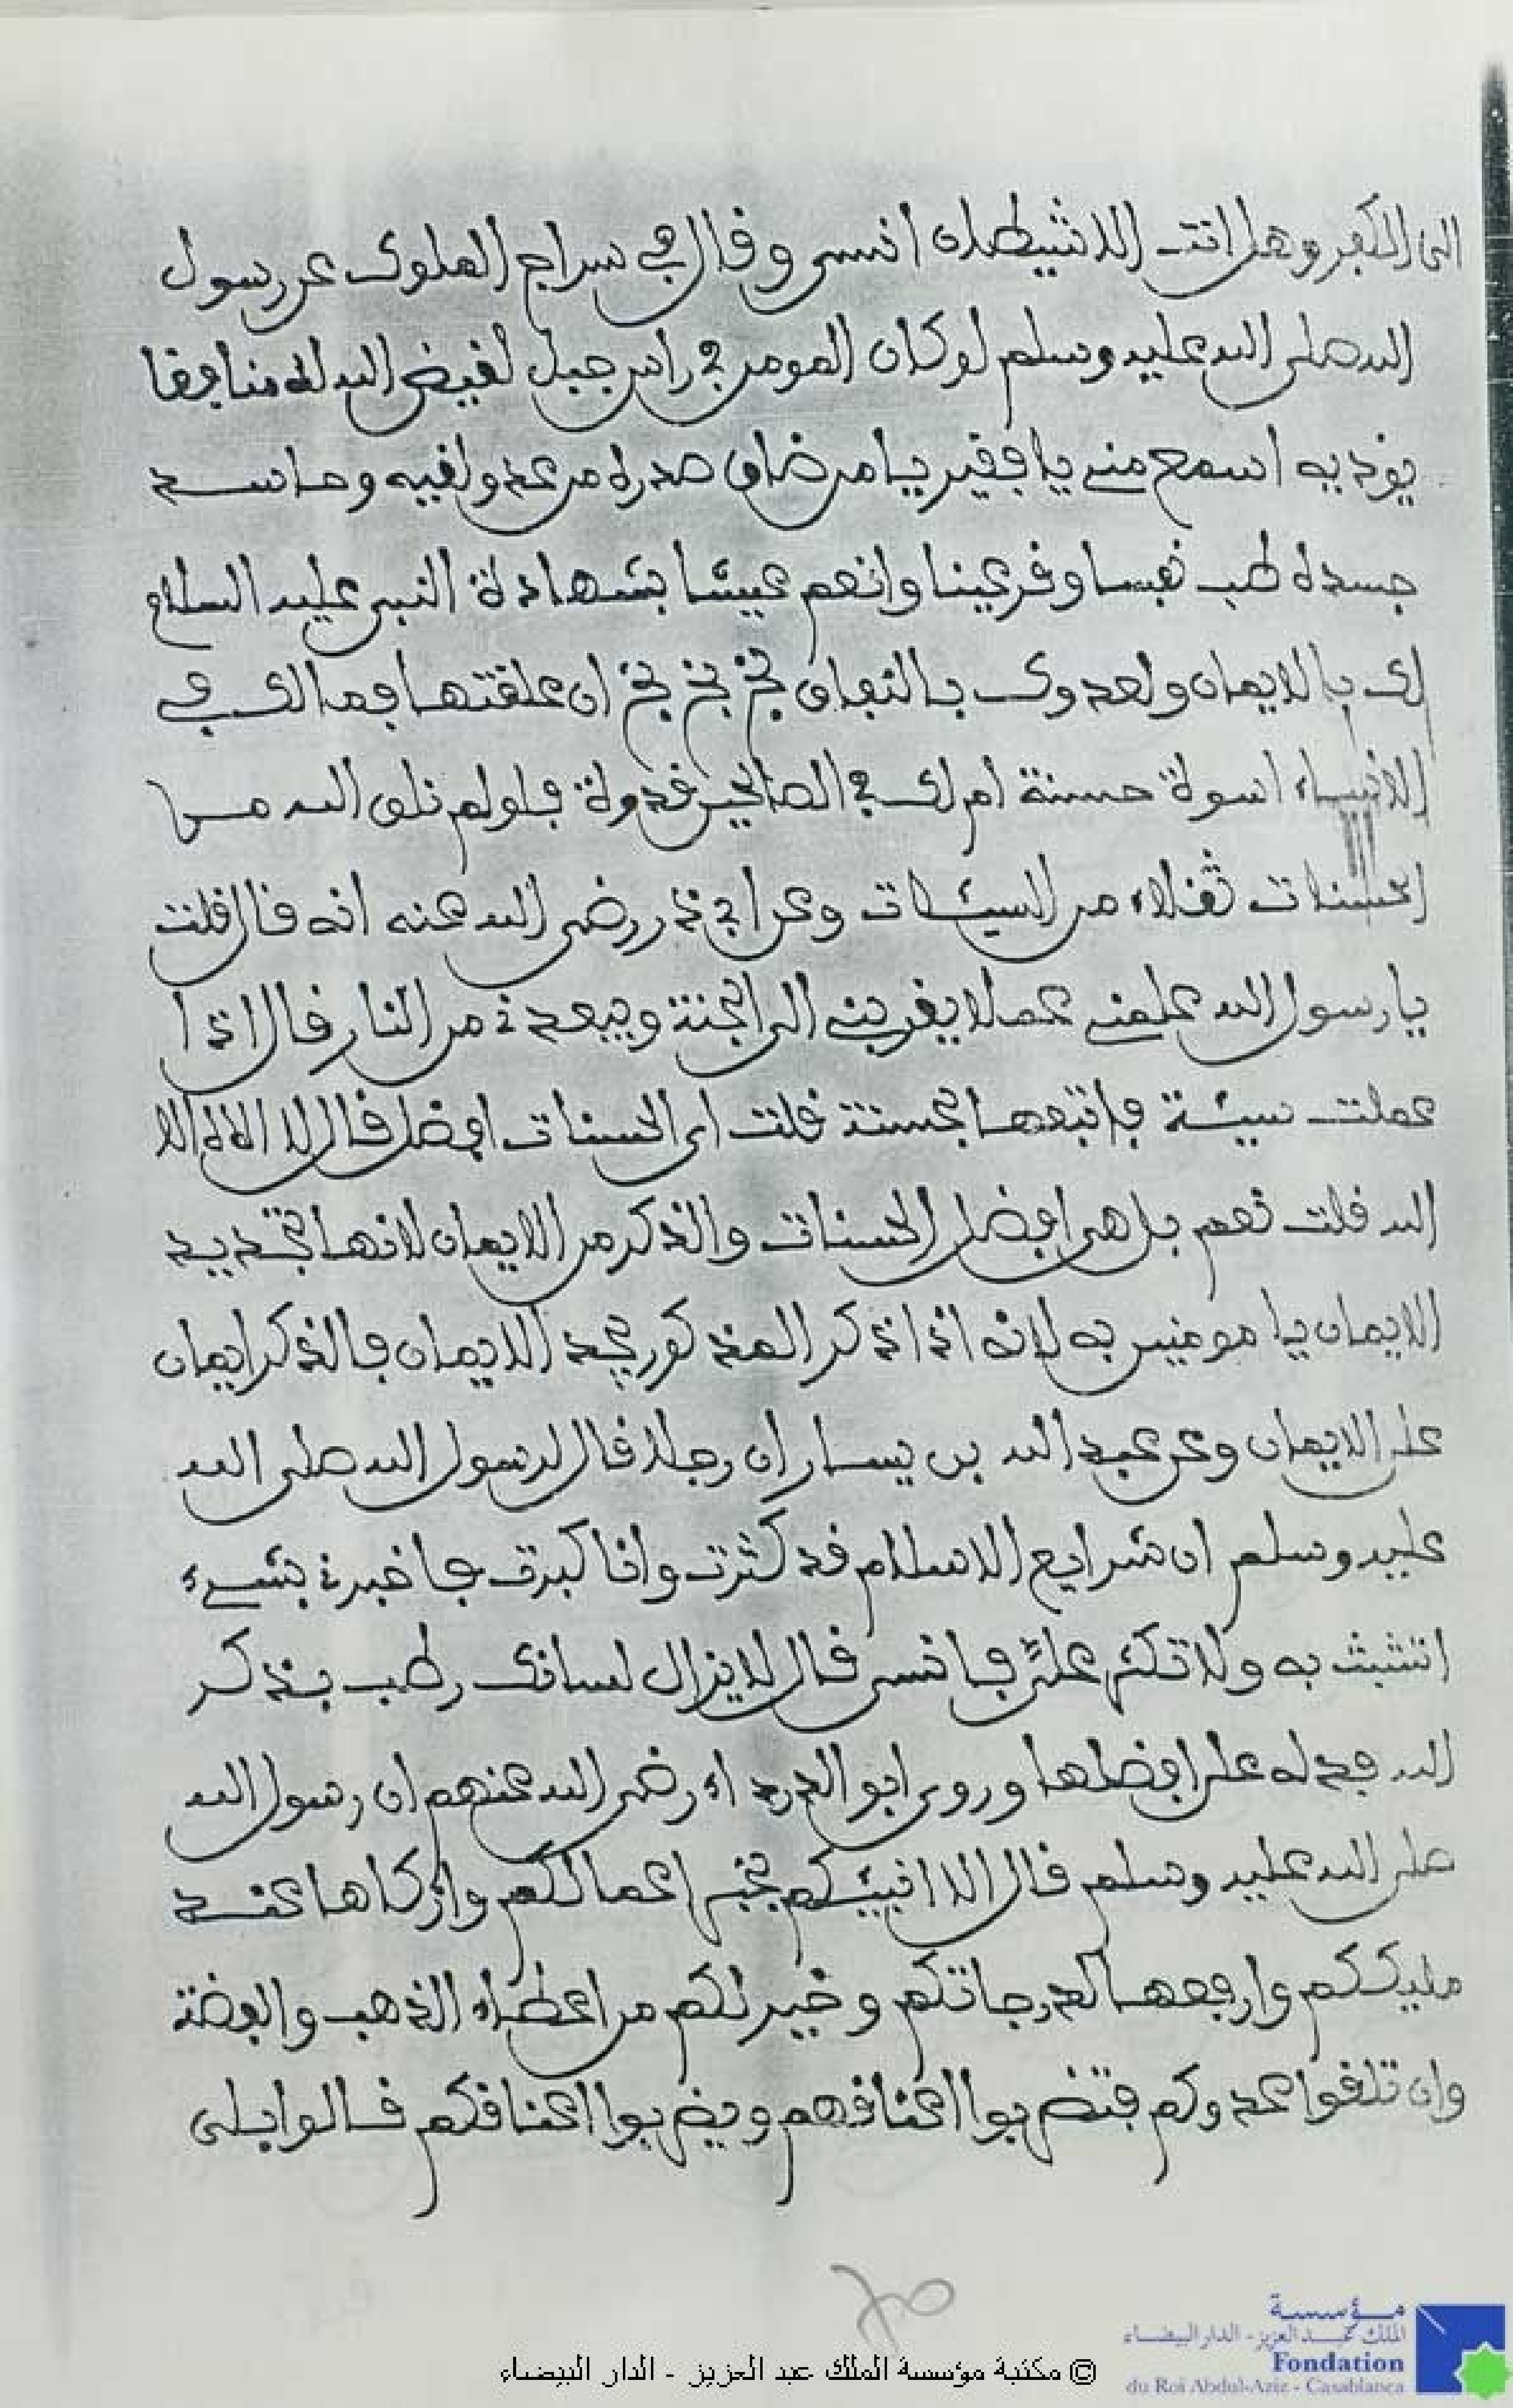 الى الكفر وهل انت الا شيطان انسى وقال في سراج الملوك عن رسول
الله صلى الله عليه وسلم لو كان المومن في راس جبل لقيض الله له منافقا
يوذيه اسمع منى يا فقير يا من ضاق صدره من عدو لقيه وحاسد
حسده طب نفسا وقر عينا وانعم عيشا بشهادة النبى عليه السلام
لك بالايمان ولعدوك بالنفاق بخ بخ بخ ان علقتها فمالك في
الانبياء اسوة حسنة ام لك في الصالحين قدوة فلو لم تلق الله من
الحسنات ثقلاء من السيئات وعن ابي ذر رضى الله عنه انه قال قلت
يا رسول الله علمنى عملا يقربنى الى الجنة ويبعدني من النار قال اذا
عملت سيئة فاتبعها بحسنة قلت اى الحسنات افضل قال لا اله الا
الله قلت نعم بل هى افضل الحسنات والذكر من الايمان لانها تجديد
الايمان يا مومنين به لانه اذا ذكر المذكور يجد الايمان فالذكر ايمان
على الايمان وعن عبد الله بن يسار ان رجلا قال لرسول الله صلى الله
عليه وسلم ان شرايع الاسلام قد كثرت وانا كبرت فاخبرني بشىء
اتشبث به ولا تكثر علىّ فانسى قال لا يزال لسانك رطب بذكر
الله فدله على افضلها وروى ابو الدرداء رضى الله عنهم ان رسول الله
صلى الله عليه وسلم قال الا انبيئكم بخير اعمالكم وازكاها عند
مليككم وارفعها لدرجاتكم وخير لكم من اعطاء الذهب والفضة
وان تلقوا عدوكم فتضربوا اعناقهم ويضربوا اعناقكم قالوا بلى
مؤسسة
الملك عبد العزيز - الدار البيضاء
Fondation
du Roi Abdul-Aziz - Casablanca
© مكتبة مؤسسة الملك عبد العزيز - الدار البيضاء